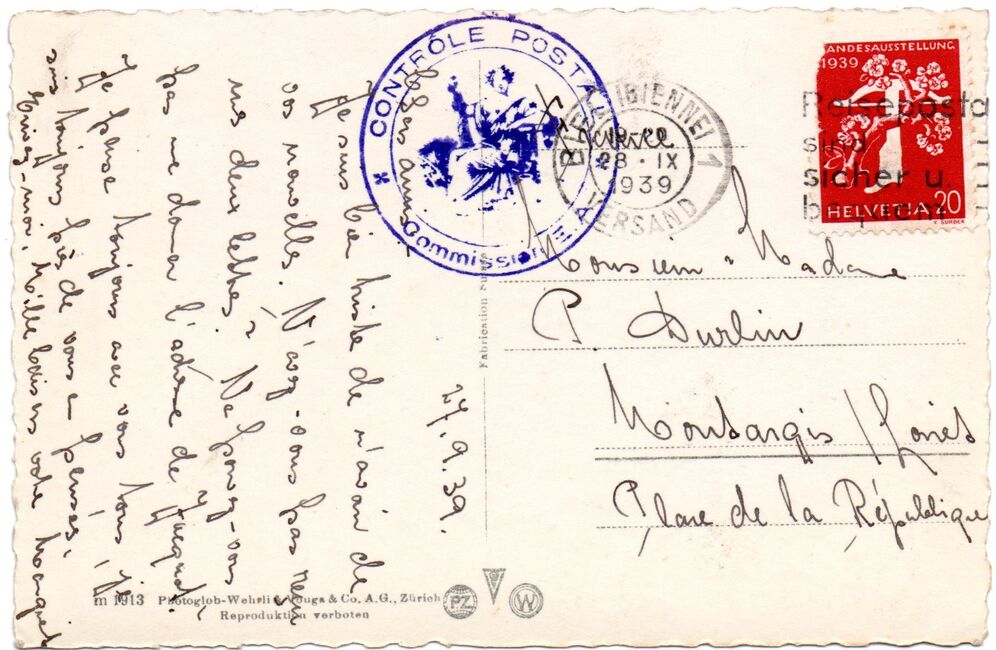 27.9.39.
Chers amis,
Je suis bien triste de n'avoir de
vos nouvelles. N'avez-vous pas reçu
mes deux lettres? Ne pouvez-vous
pas me donner l'adresse de
Je pense toujours à vous tous, je
suis toujours près de vous en pensées,
Mille baisers votre
CONTRÔLE POSTAL
Commission
BIEL (BIENNE) 1
28.IX
1939
VERSAND
LANDESAUSSTELLUNG
1939
HELVETIA 20
V. SURBEK
Reiseposta
sind
sicher u.
Monsieur - Madame
P. Durlin
Montargis / Loiret
Place de la République
Fabrication Suisse
m 1913 Photoglob-Wehrli & Vouga & Co. A.G., Zürich
Reproduktion verboten
PZ
W